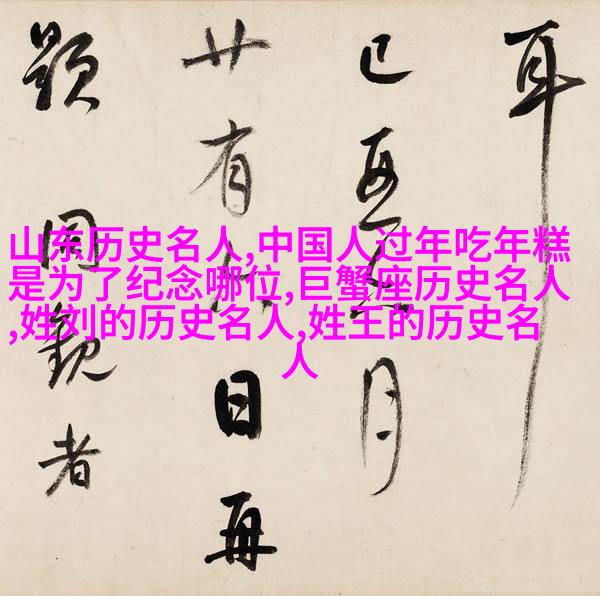 山东历史名人,中国人过年吃年糕
是为了纪念哪位,巨蟹座历史名人
,姓刘的历史名人,姓王的历史名
人
耳
己亥月
廿有日再
題同觀者